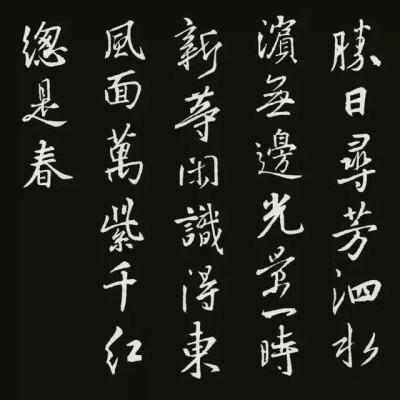 勝日尋芳泗水
濱無邊光景一時
新等閑識得東
風面萬紫千紅
總是春